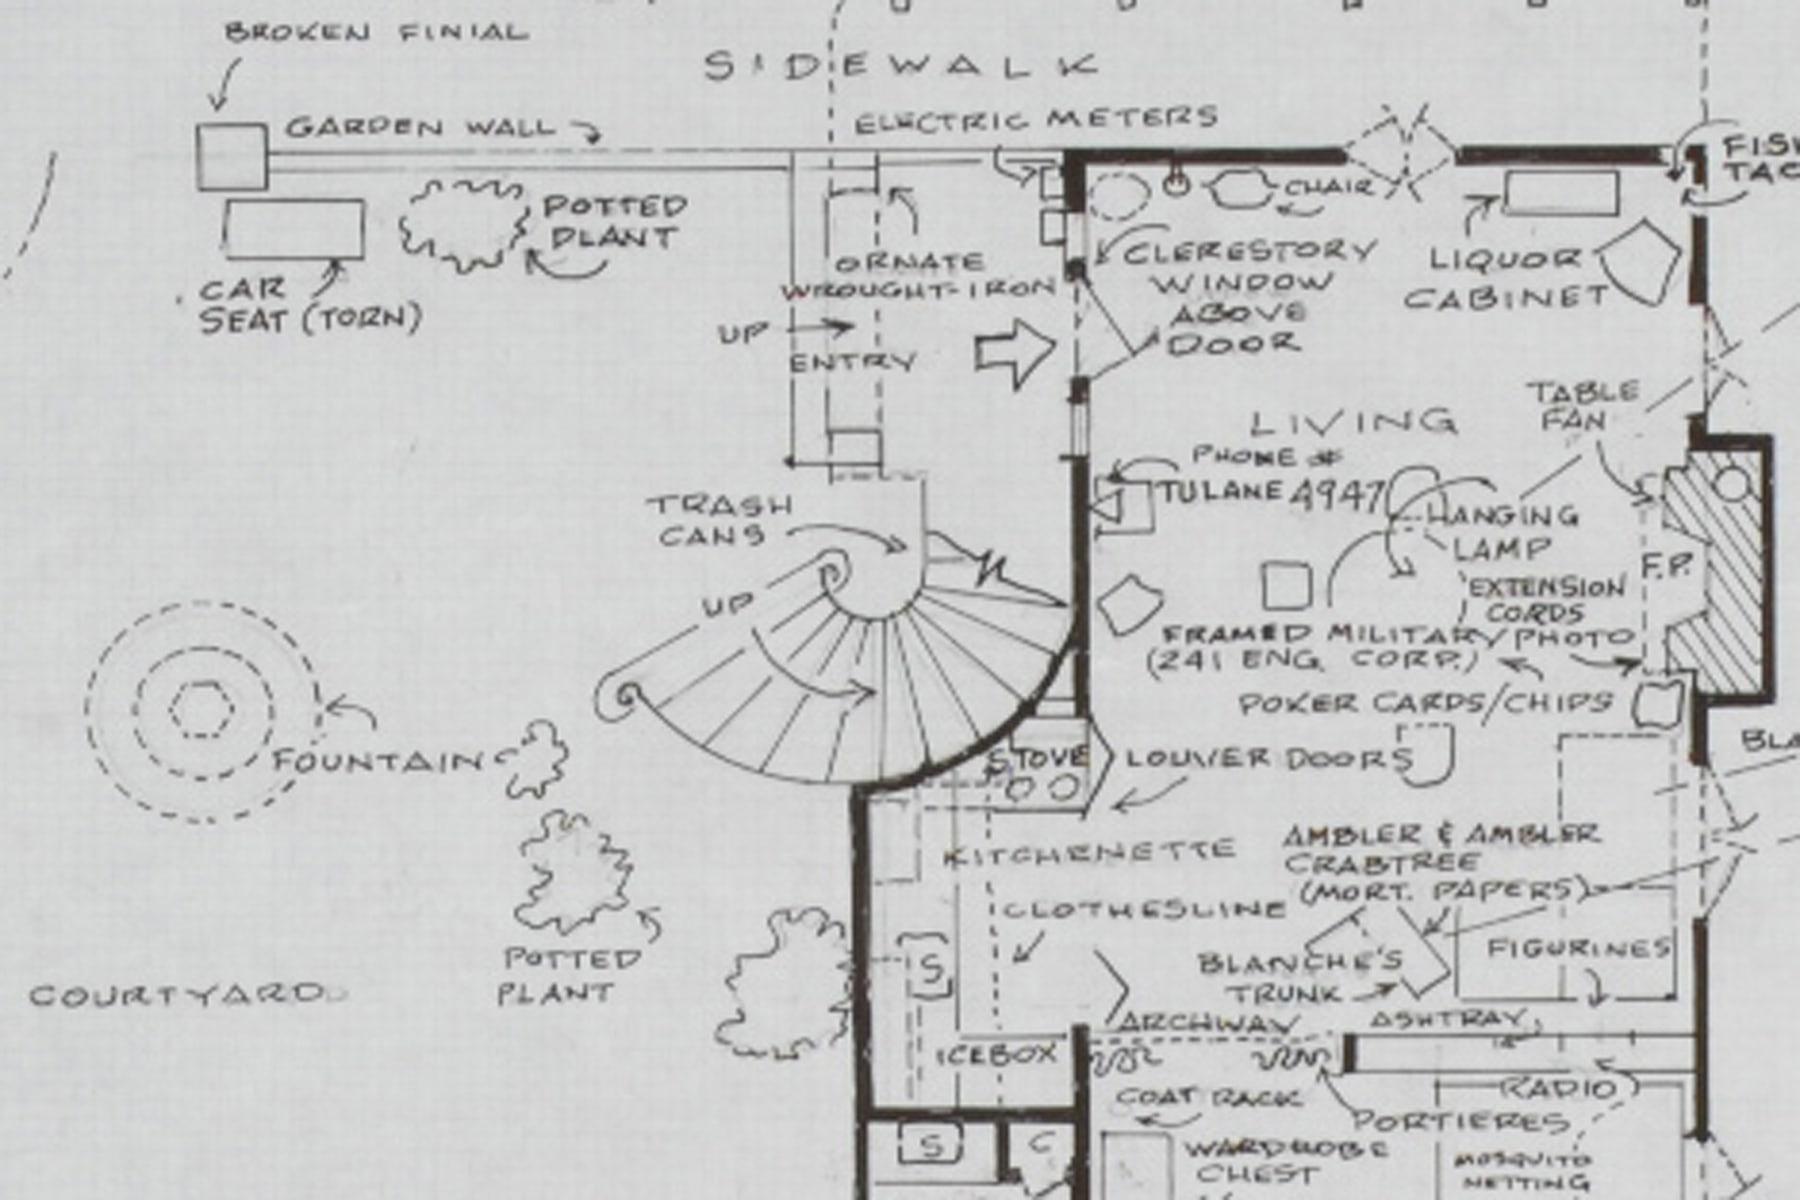 BROKEN FINIAL
SIDEWALK
GARDEN WALL
ELECTRIC METERS
POTTED
PLANT
CAR
SEAT (TORN)
ORNATE
WROUGHT-IRON
UP
ENTRY
CHAIR
CLERESTORY
WINDOW
ABOVE
DOOR
LIQUOR
CABINET
TABLE
FAN
LIVING
PHONE #
TULANE 4947
HANGING
LAMP
F.P.
EXTENSION
CORDS
FRAMED MILITARY PHOTO
(241 ENG. CORP.)
POKER CARDS/CHIPS
TRASH
CANS
UP
FOUNTAIN
STOVE
LOUVER DOORS
KITCHENETTE
AMBLER & AMBLER
CRABTREE
(MORT. PAPERS)
CLOTHESLINE
BLANCHE'S
TRUNK
FIGURINES
POTTED
PLANT
COURTYARD
S
ARCHWAY
ASHTRAY
ICEBOX
RADIO
COAT RACK
PORTIERES
S
C
WARDROBE
CHEST
MOSQUITO
NETTING